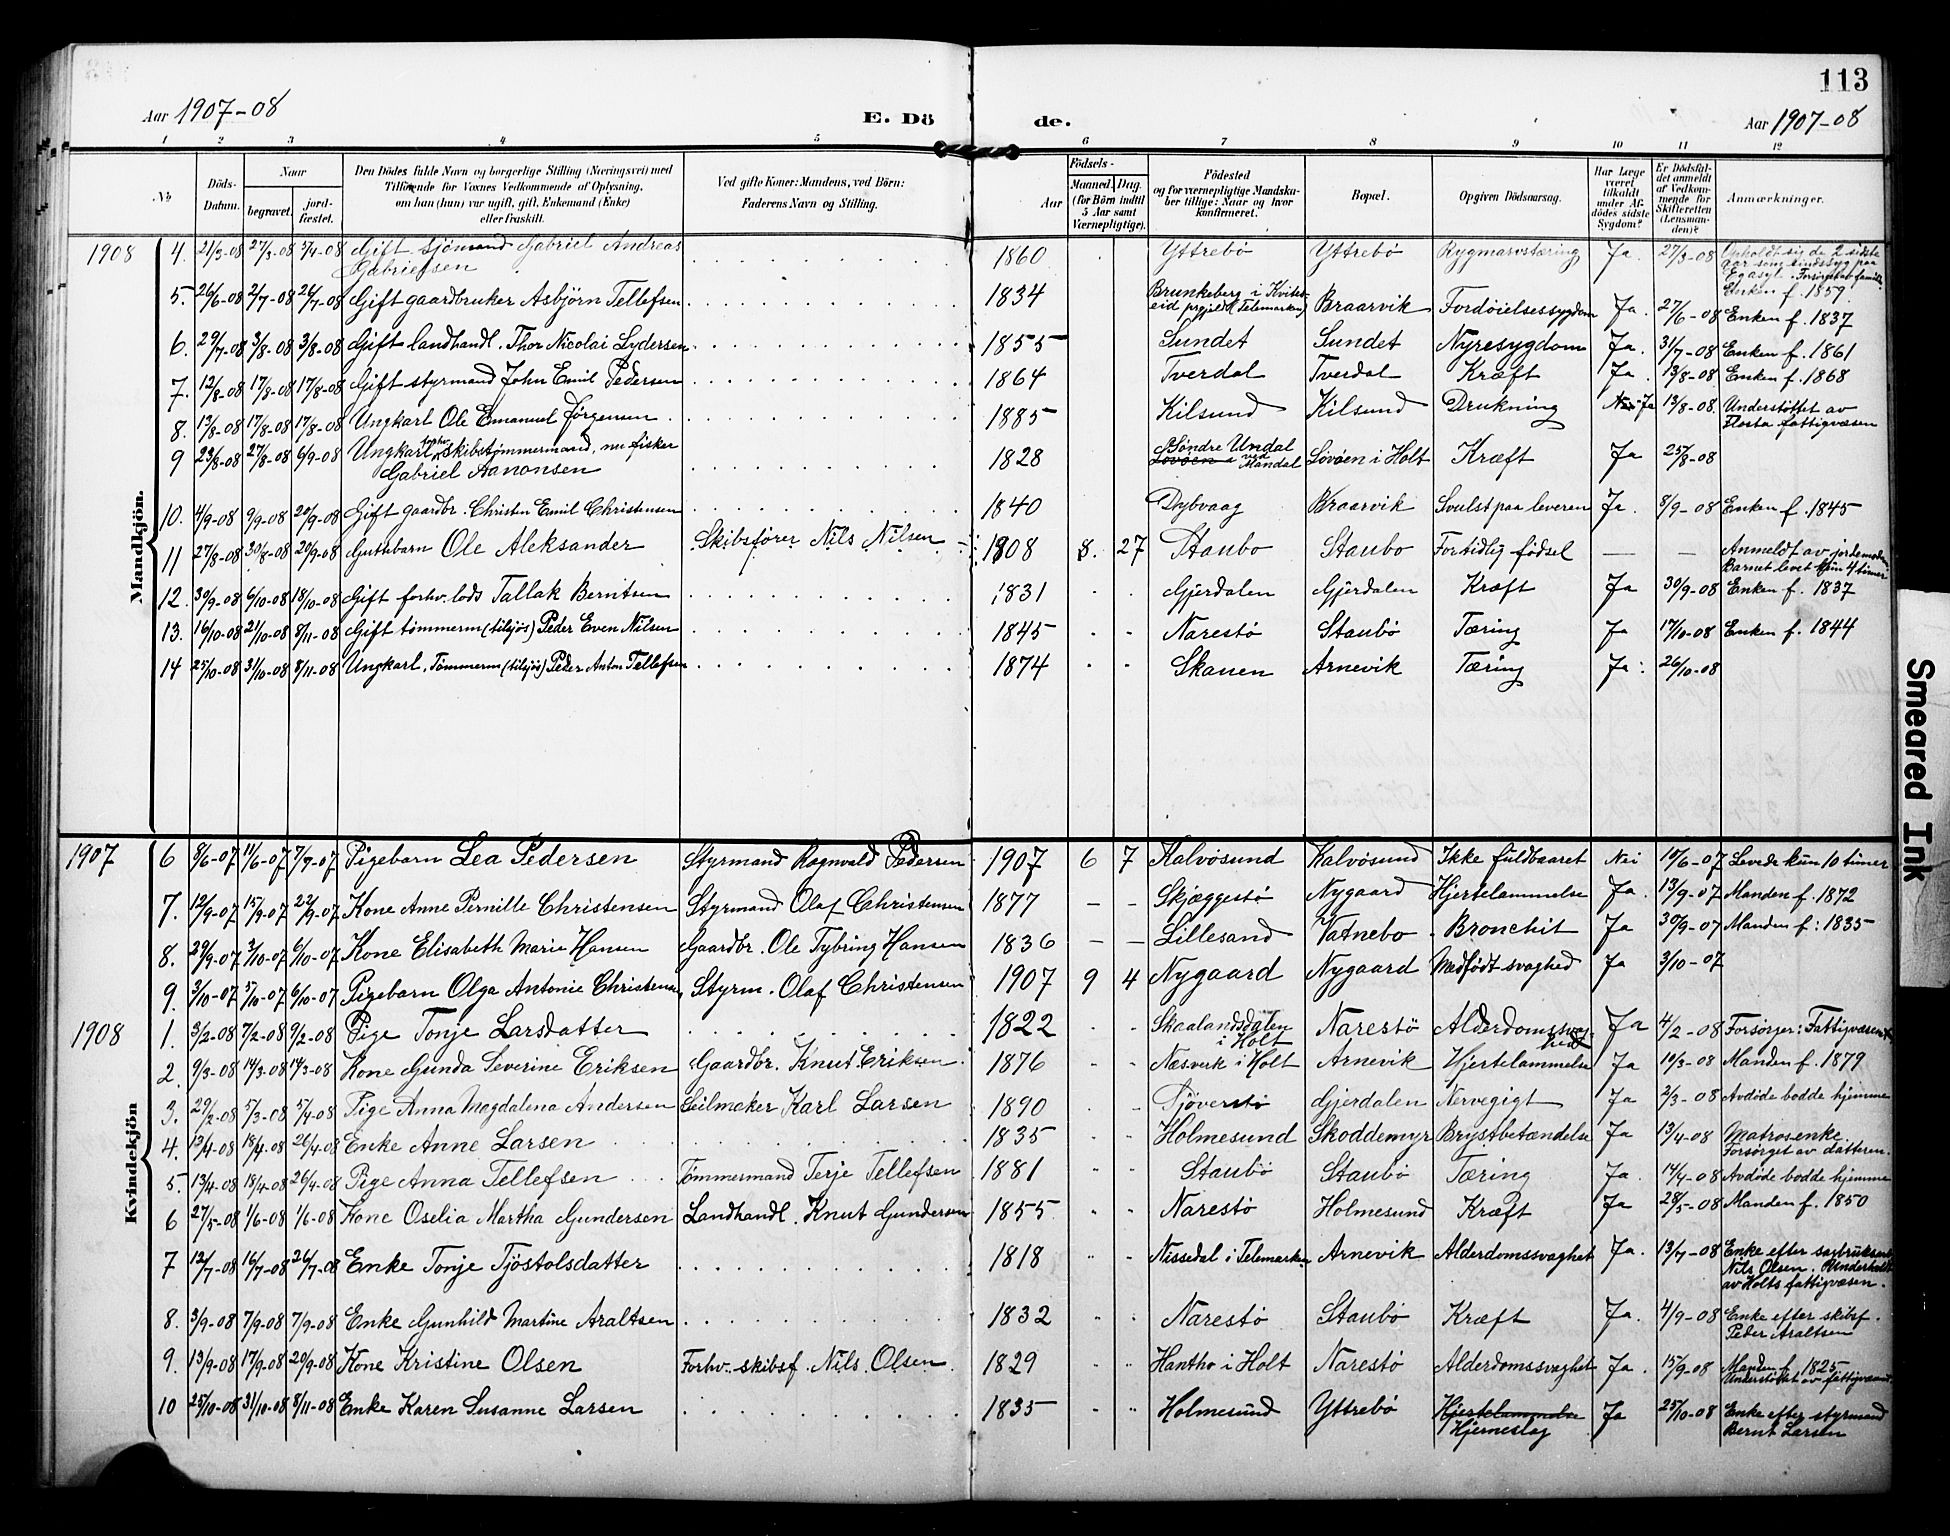 113
Aar 1907-08 E. Dö de. Aar 1907-08
1 2 3 4 5 6 7 8 9 10 11 12
No. Döds-Datum. Naar begravet. jord-fæstet. Den Dödes fulde Navn og borgerlige Stilling (Næringsvei) med Tilföiende for Voxnes Vedkommende af Oplysning, om han (hun) var ugift, gift, Enkemand (Enke) eller fraskilt. Ved gifte Koner: Mandens, ved Börn: Faderens Navn og Stilling. Födsels- Aar Maaned. Dag. (for Börn indtil 5 Aar samt Værnepligtige). Födested og for værnepligtige Mandskaber tillige: Naar og hvor konfirmeret. Bopæl. Opgiven Dödsaarsag. Har Læge været tilkaldt under Afdödes sidste Sygdom? Er Dödsfaldet anmeldt af Vedkommende for Skifteretten (Lensmanden)? Anmærkninger.
Mandkjön.
1908 4. 21/3-08 27/3-08 5/4-08 Gift sjömand Gabriel Andreas Gabrielsen 1860 Yttrebö Yttrebö Rygmarvstæring Ja. 27/3-08 Opholdt sig de 2 sidste aar som sindssyg paa Eg asyl. Forsörget av familie. Enken f. 1859.
5. 26/6-08 2/7-08 26/7-08 Gift gaardbruker Asbjörn Tellefsen 1834 Brunkeberg i Kvitseid prgjeld (Telemarken) Braarvik Fordöielsessygdom Ja. 27/6-08 Enken f. 1837
6. 29/7-08 3/8-08 3/8-08 Gift landhandl. Thor Nicolai Lydersen 1855 Sundet Sundet Nyresygdom Ja. 31/7-08 Enken f. 1861
7. 12/8-08 17/8-08 17/8-08 Gift styrmand John Emil Pedersen 1864 Tverdal Tverdal Kræft Ja. 13/8-08 Enken f. 1868
8. 13/8-08 17/8-08 17/8-08 Ungkarl Ole Emanuel Jörgensen 1885 Kilsund Kilsund Drukning Nei Ja 13/8-08. Understöttet av Flosta fattigvæsen
9 23/8-08 27/8-08 6/9-08 Ungkarl forhv. skibstömmermand, nu fisker Gabriel Aanonsen 1828 Lövöen Söndre Undal ved Mandal Lövöen i Holt Kræft Ja 25/8-08
10. 4/9-08 9/9-08 20/9-08 Gift gaardbr. Christen Emil Christensen 1840 Dybvaag Braarvik Svulst paa leveren Ja. 8/9-08 Enken f. 1845
11 27/8-08 30/8-08 20/9-08 Guttebarn Ole Aleksander Skibsförer Nils Nilsen 1908 8. 27 Staubo Staubo Fortidlig födsel — — Anmeldt av jordemoderen. Barnet levet kun 4 timer
12. 30/9-08 6/10-08 18/10-08 Gift forhv. lods Tallak Berntsen 1831 Gjerdalen Gjerdalen Kræft Ja 30/9-08 Enken f. 1837
13. 16/10-08 21/10-08 8/11-08 Gift tömmerm (tilsjös) Peder Even Nilsen 1845 Narestö Staubö Tæring Ja 17/10-08 Enken f. 1844
14 25/10-08 31/10-08 8/11-08 Ungkarl, Tömmerm (tilsjös) Peder Anton Tellefsen 1874 Skauen Arnevik Tæring Ja. 26/10-08
Kvindekjön
1907 6 8/6-07 11/6-07 7/7-07 Pigebarn Lea Pedersen Styrmand Ragnvald Pedersen 1907 6 7 Kalvösund Kalvösund Ikke fuldbaaret Nei 10/6-07 Levede kun 10 timer
7. 12/9-07 15/9-07 22/9-07 Kone Anne Pernille Christensen Styrmand Olaf Christensen 1877 — — Skjæggestö Nygaard Hjertelammelse Ja. 13/9-07 Manden f. 1872
8. 29/9-07 3/10-07 6/10-07 Kone Elisabeth Marie Hansen Gaardbr. Ole Tybring Hansen 1836 — — Lillesand Vatnebo Bronchit Ja 30/9-07 Manden f: 1835
9. 3/10-07 5/10-07 6/10-07 Pigebarn Olga Antonie Christensen Styrm. Olaf Christensen 1907 9 4 Nygaard Nygaard Medfödt svaghed Ja 3/10-07
1908 1. 3/2-08 7/2-08 9/2-08 Pige Tonje Larsdatter 1822 Skaalandsdalen i Holt Narestö Alderdomssvaghed Ja 4/2-08 Forsörger: Fattigvæsenet
2. 9/3-08 14/3-08 14/3-08 Kone Gunda Severine Eriksen Gaardbr. Knut Eriksen 1876 Næsverk i Holt Arnevik Hjertelammelse Ja 10/3-08 Manden f. 1879
3. 29/2-08 5/3-08 5/4-08 Pige Anna Magdalena Andersen Seilmaker Karl Larsen 1890 Tjöverstö Gjerdalen Nervegigt Ja 2/3-08 Avdöde bodde hjemme
4. 12/4-08 18/4-08 26/4-08 Enke Anne Larsen 1835 Holmesund Skoddemyr Brystbetændelse Ja 13/4-08 Matrosenke. Forsörget av datteren.
5. 13/4-08 18/4-08 26/4-08 Pige Anna Tellefsen Tömmermand Terje Tellefsen 1881 Staubö Staubö Tæring Ja. 14/4-08 Avdöde bodde hjemme
6 27/5-08 1/6-08 1/6-08 Kone Oselia Martha Gundersen Landhandl. Knut Gundersen 1855 Narestö Holmesund Kræft Ja 28/5-08 Manden f. 1850
7 12/7-08 16/7-08 26/7-08 Enke Tonje Tjöstolsdatter 1818 Nissedal i Telemarken Arnevik Alderdomssvaghet Ja. 13/7-08 Enke efter Nils Olsen. Underholdt av Holts fattigvæsen.
8. 3/9-08 7/9-08 7/9-08 Enke Gunhild Martine Araltsen 1832 Narestö Staubö Kræft Ja. 4/9-08 Enke efter skibsf. Peder Araltsen
9. 13/9-08 17/9-08 20/9-08 Kone Kristine Olsen Forhv. skibsf. Nils Olsen 1829 Hantho i Holt Narestö Alderdomssvaghet Ja. 15/9-08 Manden f. 1825 Understöttet av fattigvæsenet
10 25/10-08 31/10-08 8/11-08 Enke Karen Susanne Larsen 1835 Holmesund Yttrebö Hjertelammelse Hjerneslag Ja 25/10-08 Enke efter styrmand Bernt Larsen
Smeared Ink